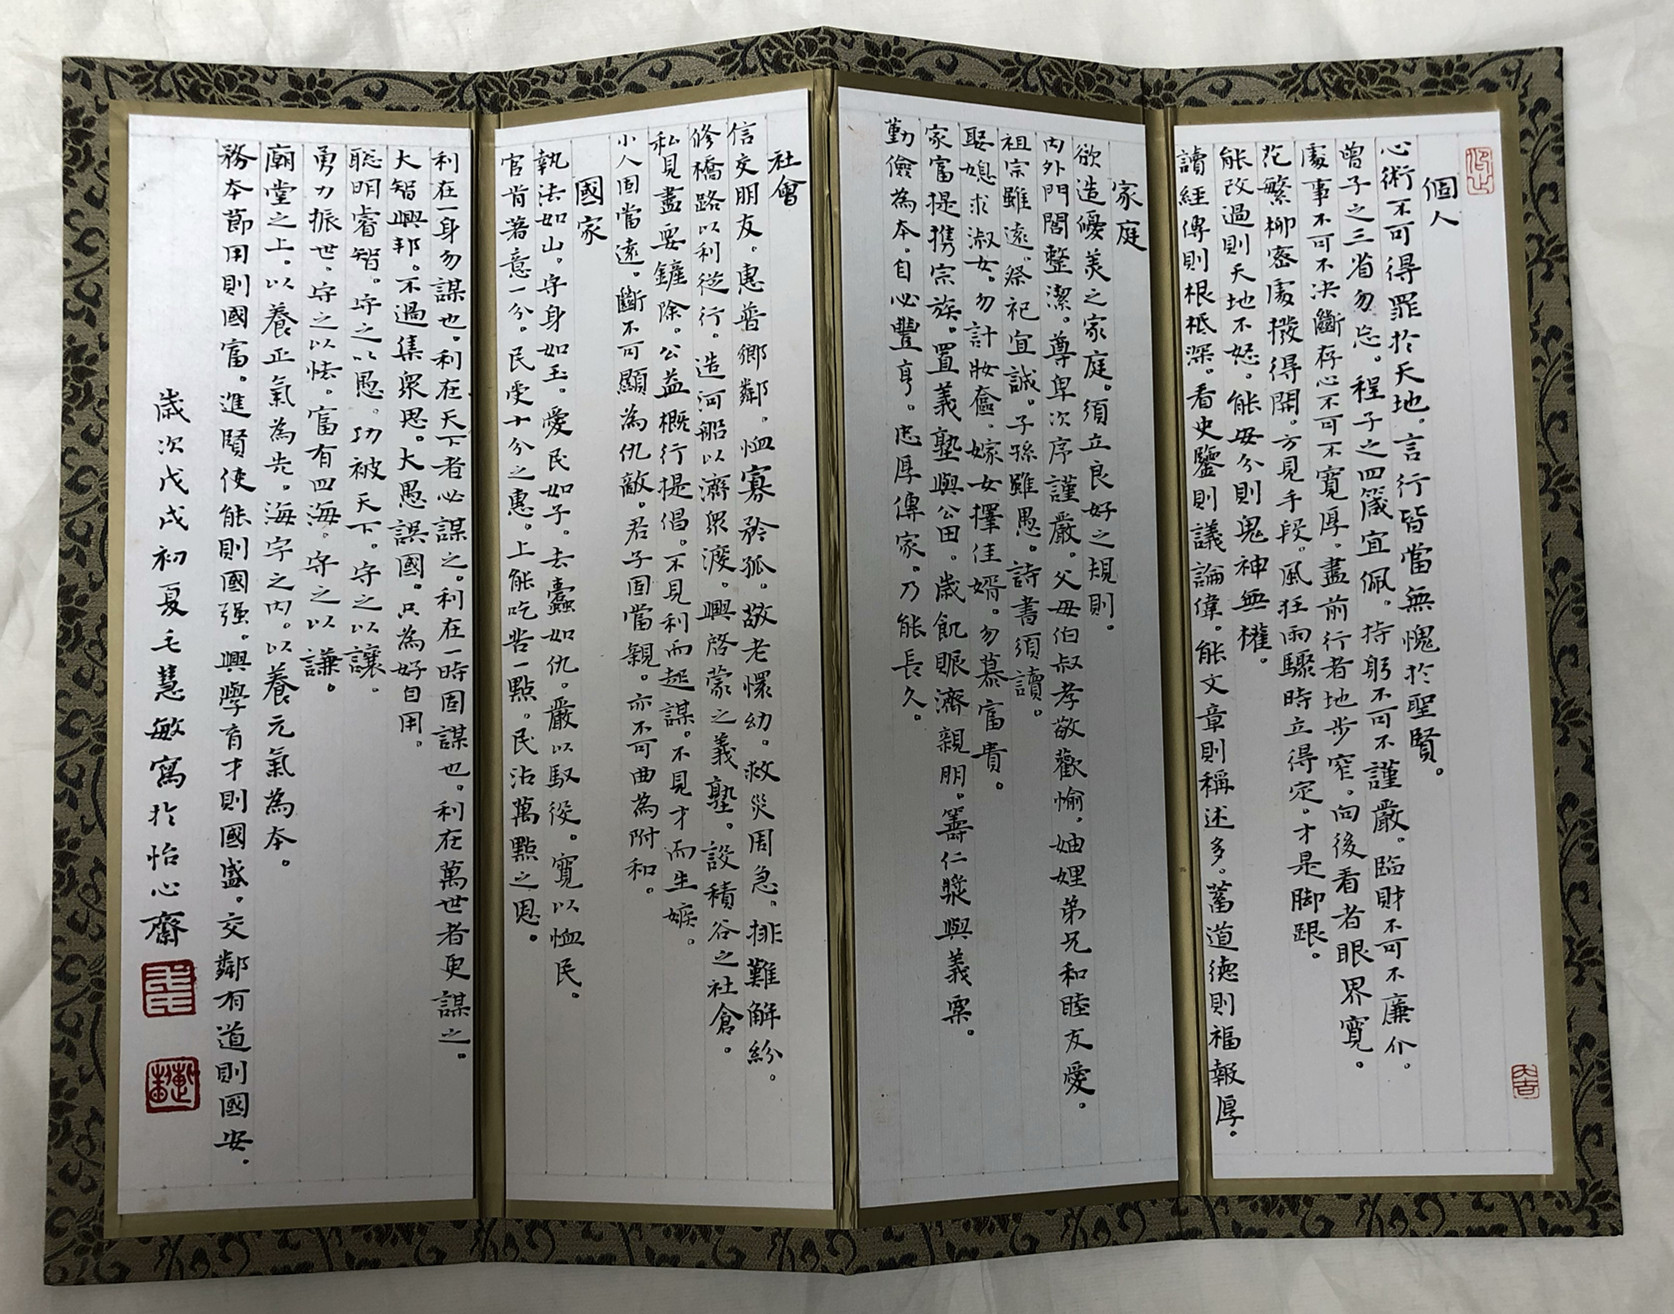 個人
心術不可得罪於天地。言行皆當無愧於聖賢。
曾子之三省勿忘。程子之四箴宜佩。持躬不可不謹嚴。臨財不可不廉介。
處事不可不決斷存心不可不寬厚。盡前行者地步窄。向後看者眼界寬。
花繁柳密處撥得開。方見手段。風狂雨驟時立得定。才是脚跟。
能改過則天地不怒。能安分則鬼神無權。
讀經傳則根柢深。看史鑒則議論偉。能文章則稱述多。蓄道德則福報厚。
家庭
欲造優美之家庭。須立良好之規則。
內外門閭整潔。尊卑次序謹嚴。父母伯叔孝敬歡愉。妯娌弟兄和睦友愛。
祖宗雖遠。祭祀宜誠。子孫雖愚。詩書須讀。
娶媳求淑女。勿計妝奩。嫁女擇佳婿。勿慕富貴。
家富提携宗族。置義塾與公田。歲飢賑濟親朋。籌仁漿與義粟。
勤儉為本。自必豐亨。忠厚傳家。乃能長久。
社會
信交朋友。惠普鄉鄰。恤寡矜孤。敬老懷幼。救災周急。排難解紛。
修橋路以利從行。造河船以濟眾渡。興啓蒙之義塾。設積谷之社倉。
私見盡要鏟除。公益概行提倡。不見利而起謀。不見才而生嫉。
小人固當遠。斷不可顯為仇敵。君子固當親。亦不可曲為附和。
國家
執法如山。守身如玉。愛民如子。去蠹如仇。嚴以馭役。寬以恤民。
官肯著意一分。民受十分之惠。上能吃苦一點。民沾萬點之恩。
利在一身勿謀也。利在天下者必謀之。利在一時固謀也。利在萬世者更謀之。
大智興邦。不過集眾思。大愚誤國。只為好自用。
聪明睿智。守之以愚。功被天下。守之以讓。
勇力振世。守之以怯。富有四海。守之以謙。
廟堂之上。以養正氣為先。海宇之內。以養元氣為本。
務本節用則國富。進賢使能則國强。興學育才則國盛。交鄰有道則國安。
歲次戊戌初夏毛慧敏寫於怡心齋